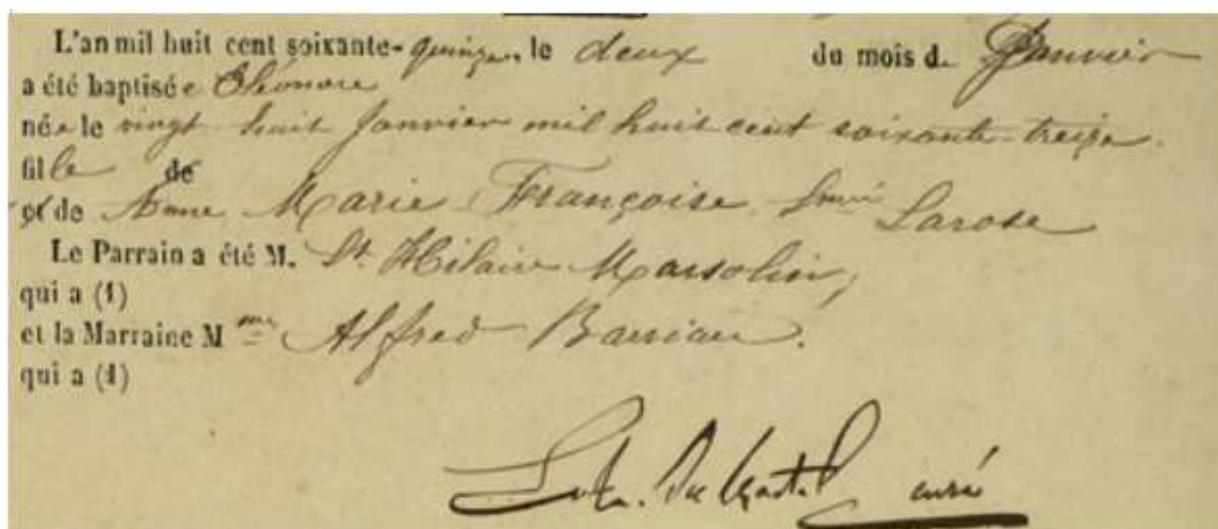 L'an mil huit cent soixante-quinze, le deux du mois d. Janvier
a été baptisée Eléonore
née le vingt-huit Janvier mil huit cent soixante-treize.
fille de
et de Anne Marie Françoise Larose
Le Parrain a été M. St. Hilaire Marsolin,
qui a (1)
et la Marraine Mme Alfred
qui a (1)
curé